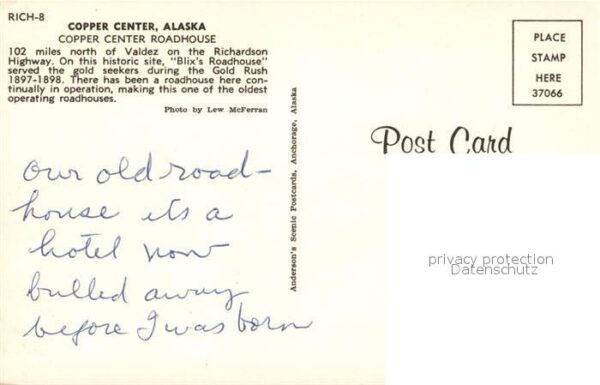 RICH-8
COPPER CENTER, ALASKA
COPPER CENTER ROADHOUSE
102 miles north of Valdez on the Richardson
Highway. On this historic site, "Blix's Roadhouse"
served the gold seekers during the Gold Rush
1897-1898. There has been a roadhouse here con-
tinually in operation, making this one of the oldest
operating roadhouses.
Photo by Lew McFerran
our old road-
house its a
hotel now
bulled away
before I was born
Anderson's Scenic Postcards, Anchorage, Alaska
PLACE
STAMP
HERE
37066
Post Card
privacy protection
Datenschutz